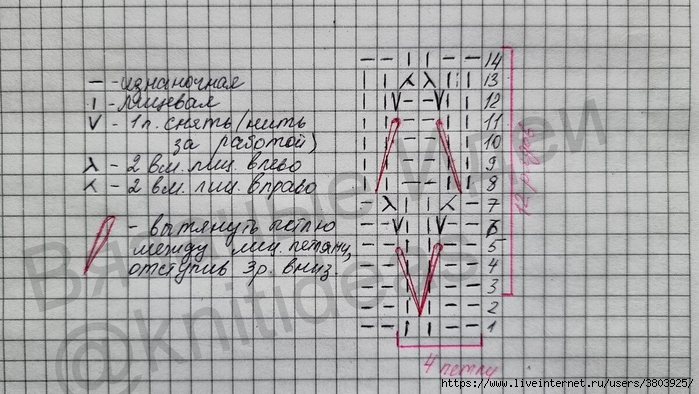 — - изнаночная
I - лицевая
V - 1 п. снять (нить
за работой)
⋋ - 2 вм. лиц. влево
⋌ - 2 вм. лиц. вправо
- вытянуть петлю
между лиц. петями,
отступив 3 р. вниз
14
13
12
11
10
9
8
7
6
5
4
3
2
1
4 петли
@knitideas
https://www.liveinternet.ru/users/3803925/